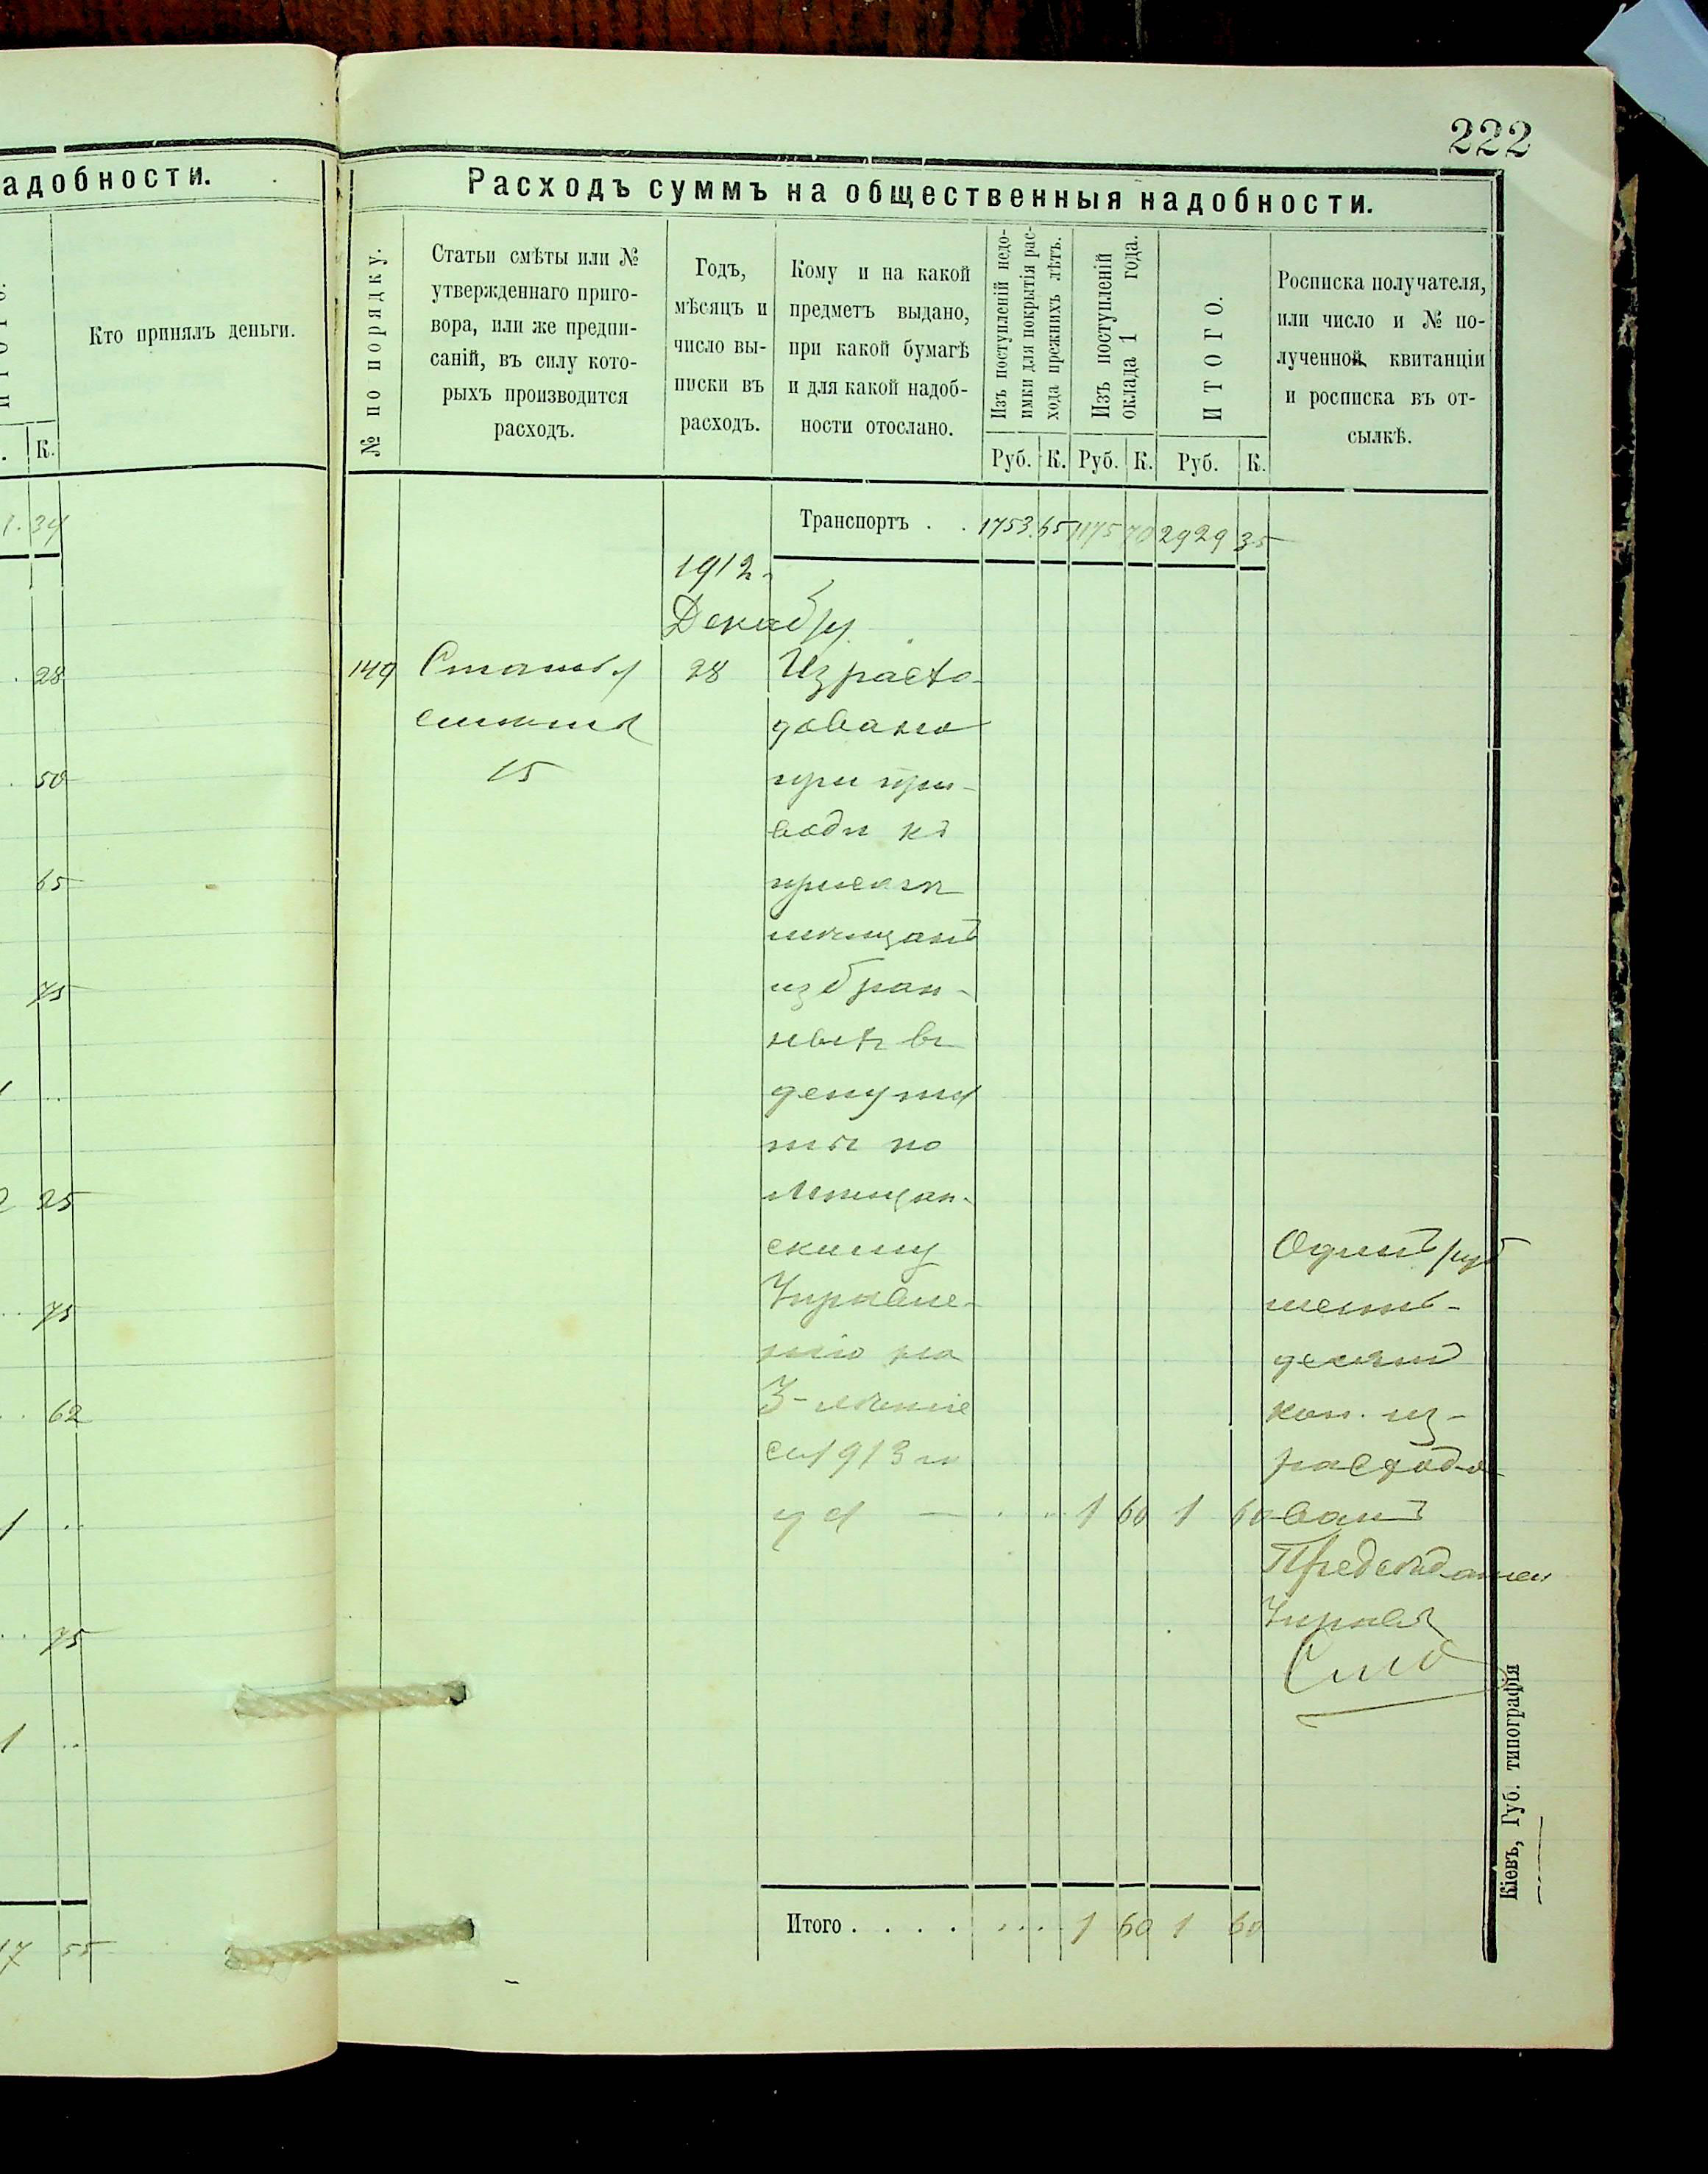 222
адобности.
Кто принялъ деньги.
К.
34
28
50
65
75
25
75
62
1
75
1
17 55
Расходъ суммъ на общественныя надобности.
№ по порядку.
Статьи смѣты или №
утвержденнаго приго-
вора, или же предпи-
саній, въ силу кото-
рыхъ производится
расходъ.
Годъ,
мѣсяцъ и
число вы-
писки въ
расходъ.
Кому и на какой
предметъ выдано,
при какой бумагѣ
и для какой надоб-
ности отослано.
Изъ поступленій недо-
имки для покрытія рас-
хода прежнихъ лѣтъ.
Изъ поступленій
оклада 1 года.
ИТОГО.
Росписка получателя,
или число и № по-
лученной квитанціи
и росписка въ от-
сылкѣ.
Руб. К. Руб. К. Руб. К.
Транспортъ . . 1753 65 1175 70 2929 35
1912
Декабря
149 Статья 28 Израсхо-
смѣты доваано
15 при при-
водѣ къ
присягѣ
мѣщанъ
избран-
ныхъ въ
депута
ты по
Мѣщан-
скому
Управле-
нію на
3-лѣтіе
съ 1913 го
да — 1 60 1 60
Одинъ руб
шесть-
десятъ
коп. из-
расходо-
валъ
Председатель
Управы
Итого . . . . 1 60 1 60
Кіевъ, Губ. типографія